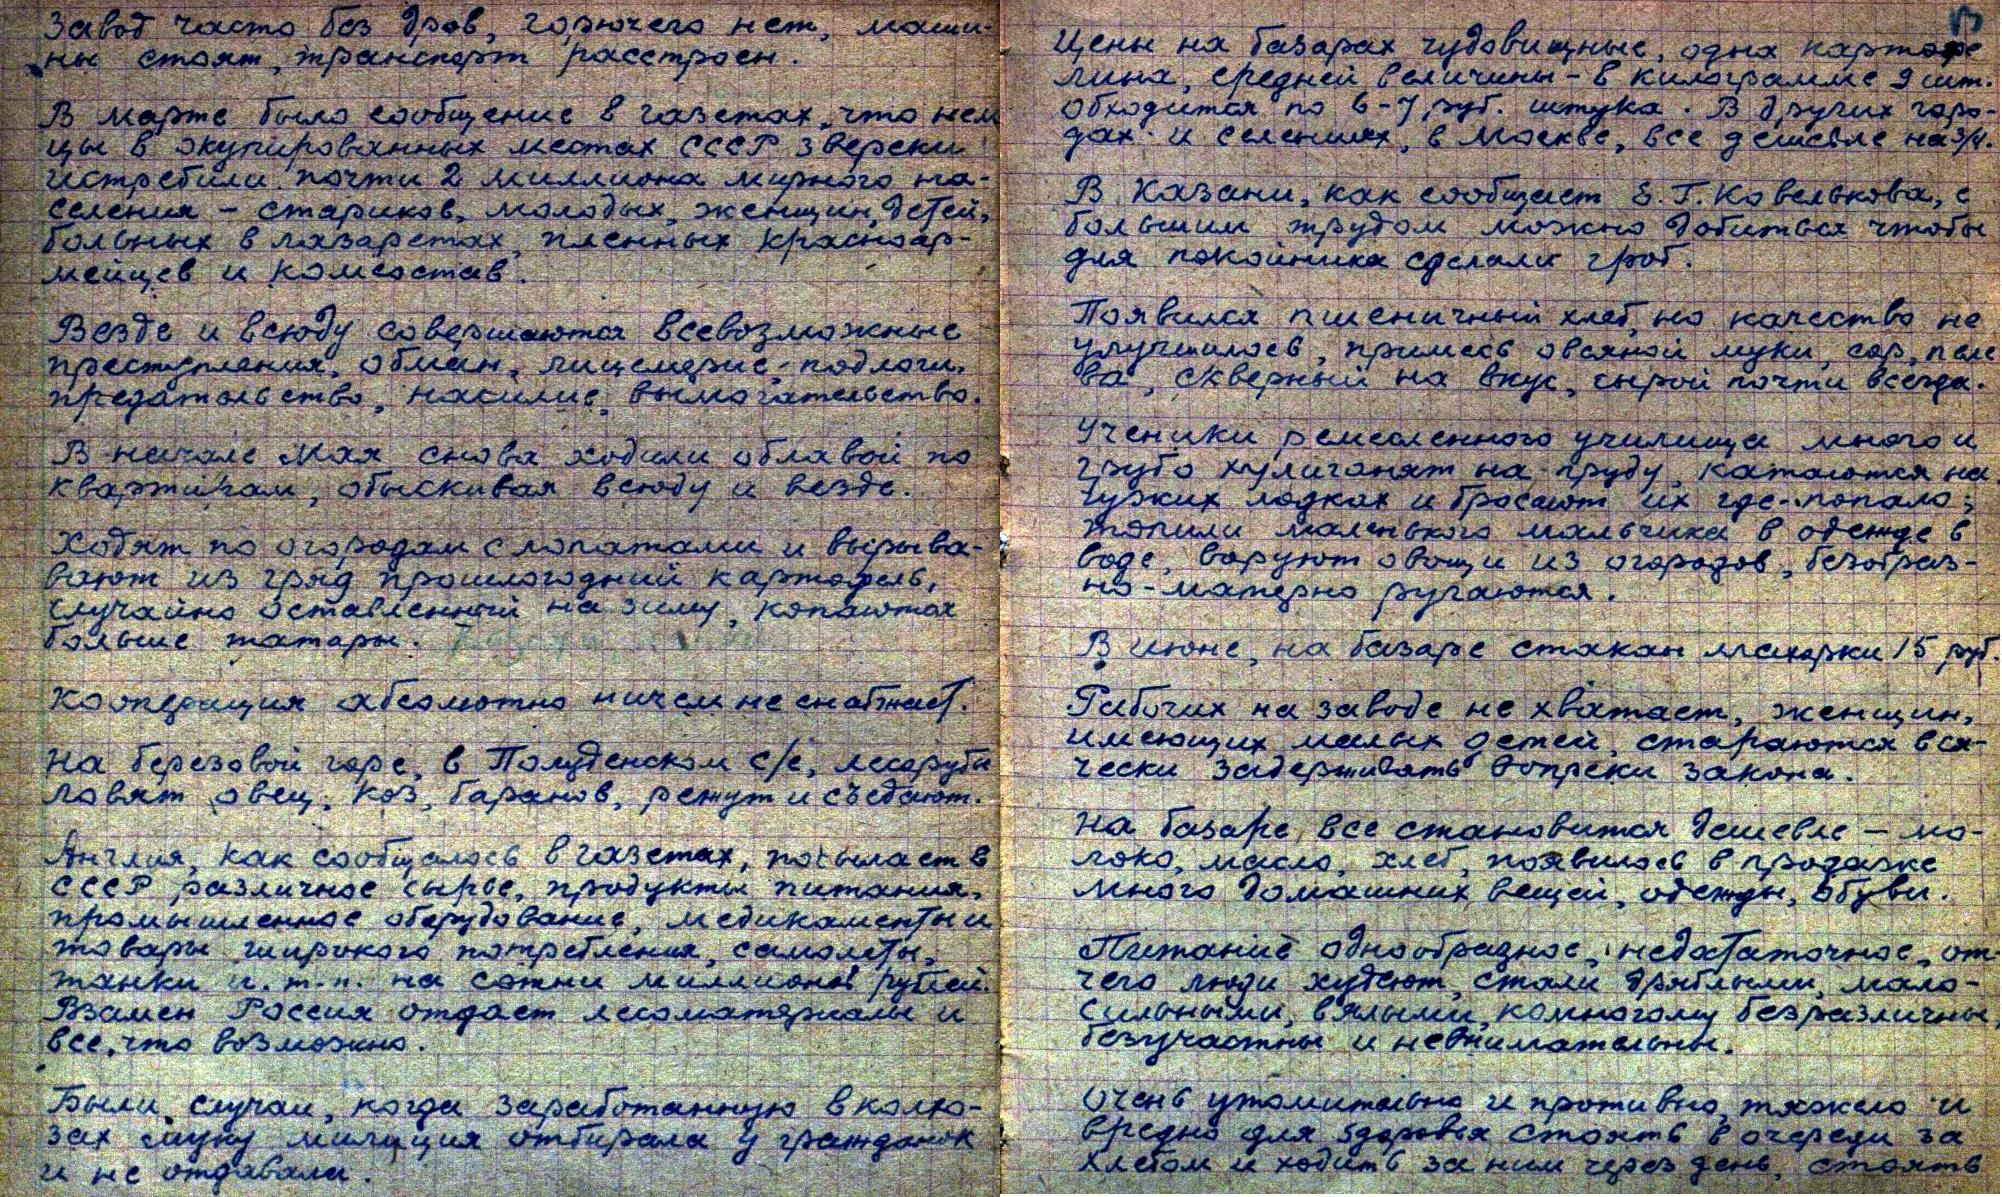 Завод часто без дров, горючего нет, маши-
ны стоят, транспорт расстроен.
В марте было сообщение в газетах, что нем
цы в окупированных местах СССР зверски
истребили почти 2 миллиона мирного на-
селения - стариков, молодых, женщин, детей,
больных в лазаретах, пленных красноар-
мейцев и комсостав.
Везде и всюду совершаются всевозможные
преступления, обман, лицемерие, подлоги,
предательство, насилие, вымогательство.
В начале мая снова ходили облавой по
квартирам, обыскивая всюду и везде.
Ходят по огородам с лопатами и вырыва-
вают из гряд прошлогодний картофель,
случайно оставленный на зиму, копаются
больше татары.
Кооперация абсолютно ничем не снабжает.
На березовой горе, в Полуденском с/с, лесорубы
ловят овец, коз, баранов, режут и съедают.
Англия, как сообщалось в газетах, посылает в
СССР различное сырье, продукты питания,
промышленное оборудование, медикаменты и
товары широкого потребления, самолеты,
танки и.т.п. на сотни миллионов рублей.
Взамен Россия отдает лесоматериалы и
все, что возможно.
Были случаи, когда заработанную в колхо-
зах муку милиция отбирала у гражданок
и не отдавали.
Цены на базарах чудовищные, одна картофе
лина, средней величины - в килограмме 9 шт.
обходится по 6-7 руб. штука. В других горо-
дах и селениях, в Москве, все дешевле на 3/4.
В Казани, как сообщает Е.Г. Ковелькова, с
большим трудом можно добиться чтобы
для покойника сделали гроб.
Появился пшеничный хлеб, но качество не
улучшилось, примесь овсяной муки, сор, поло
ва, скверный на вкус, сырой почти всегда.
Ученики ремесленного училища много и
грубо хулиганят на пруду, катаются на
чужих лодках и бросают их где-попало;
топили маленького мальчика в одежде в
воде, воруют овощи из огородов, безобраз-
но-матерно ругаются.
В июне, на базаре стакан махорки 15 руб.
Рабочих на заводе не хватает, женщин,
имеющих малых детей, стараются вся-
чески задерживать вопреки закона.
На базаре, все становится дешевле - мо-
локо, масло, хлеб, появилось в продаже
много домашних вещей, одежды, обуви.
Питание однообразное, недостаточное, от
чего люди худеют, стали дряблыми, мало-
сильными, вялыми, комногому безразличны,
безучастны и невнимательны.
Очень утомительно и противно, тяжело и
вредно для здоровья стоять в очереди за
хлебом и ходить за ним через день, стоять